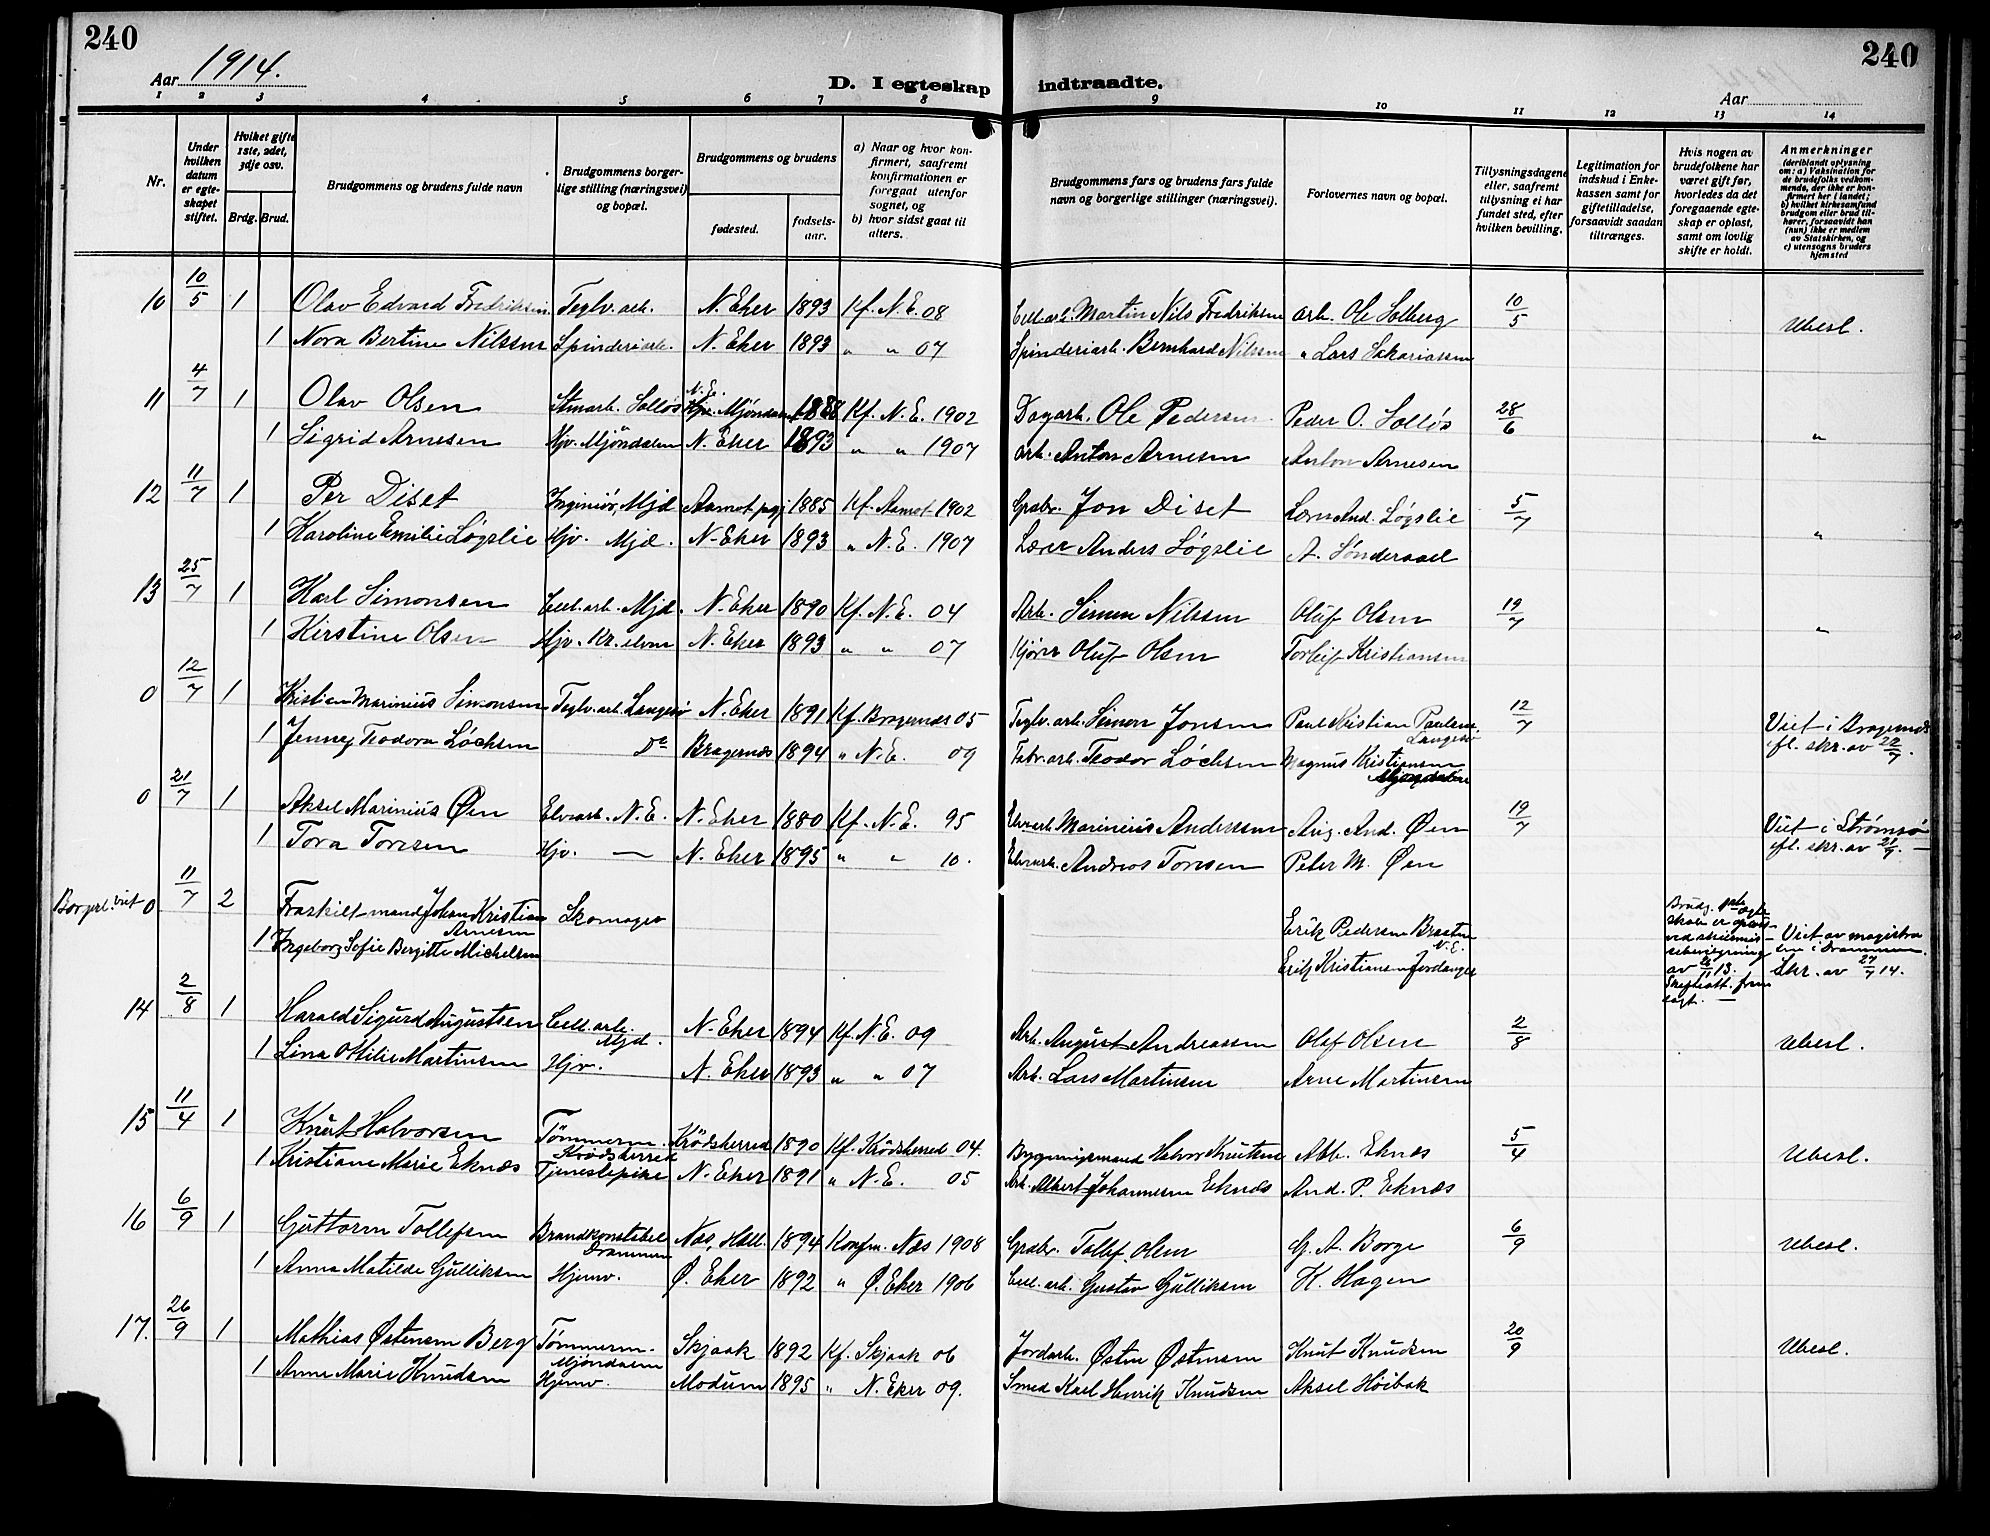 240
240
Aar 1914.
D. I egteskap indtraadte.
Aar
1 2 3 4 5 6 7 8 9 10 11 12 13 14
Nr.
Under hvilken datum er egteskapet stiftet.
Hvilket gifte 1ste, 2det, 3dje osv.
Brdg. Brud.
Brudgommens og brudens fulde navn
Brudgommens borgerlige stilling (næringsvei) og bopæl.
Brudgommens og brudens
fødested.
fødselsaar.
a) Naar og hvor konfirmert, saafremt konfirmationen er foregaat utenfor sognet, og
b) hvor sidst gaat til alters.
Brudgommens fars og brudens fars fulde navn og borgerlige stillinger (næringsvei).
Forlovernes navn og bopæl.
Tillysningsdagene eller, saafremt tillysning ei har fundet sted, efter hvilken bevilling.
Legitimation for indskud i Enkekassen samt for giftetilladelse, forsaavidt saadan tiltrænges.
Hvis nogen av brudefolkene har været gift før, hvorledes da det foregaaende egteskap er opløst, samt om lovlig skifte er holdt.
Anmerkninger (deriblandt oplysning om: a) Vaksination for de brudefolks vedkommende, der ikke er konfirmert her i landet; b) hvilket kirkesamfund brudgom eller brud tilhører, forsaavidt han (hun) ikke er medlem av Statskirken, og c) utensogns bruders hjemsted
10 10/5 1 Olav Edvard Fredriksen Teglv. arb. N. Eker 1893 Kf. N. E. 08 Cell. arb. Martin Nils Fredriksen Arb. Ole Solberg 10/5 Ubesl.
1 Nora Bertine Nilssen Spinderiarb. N. Eker 1893 " " 07 Spinderiarb. Bernhard Nilssen " Lars Sakariassen
11 4/7 1 Olav Olsen Stenarb. Solløs N. E. Mjøndalen 1888 Kf. N. E. 1902 Dagarb. Ole Pedersen Peder O. Solløs 28/6 "
1 Sigrid Arnesen Hjv. Mjöndalen N. Eker 1893 " " 1907 Arb. Anton Arnesen Anton Arnesen
12 11/7 1 Per Diset Ingeniør, Mjd Aamot pgj 1885 Kf. Aamot 1902 Grdbr. Jon Diset Lærer And. Løgslie 5/7 "
1 Karoline Emilie Løgslie Hjv. Mjd. N. Eker 1893 " N. E. 1907 Lærer Anders Løgslie A. Sønderaal
13 25/7 1 Karl Simonsen Cell. arb. Mjd. N. Eker 1890 Kf. N. E. 04 Arb. Simen Nilssen Oluf Olsen 19/7 "
1 Kirstine Olsen Hjv. Kr. elven N. Eker 1893 " " 07 Kjører Oluf Olsen Torleif Kristiansen
0 12/7 1 Kristian Marinius Simonsen Teglv. arb. Langesø N. Eker 1891 Kf. Bragernæs 05 Teglv. arb. Simen Jonsen Paul Kristian Paulsen Langesø 12/7 Viet i Bragernæs fl. skr. av 22/7.
1 Jenney Teodora Löchsen Do Bragernæs 1894 " N. E. 09 Fabr. arb. Teodor Løchsen Magnus Kristiansen Mjøndalen
0 21/7 1 Aksel Marinius Øen Elvearb. N. E. N. Eker 1880 Kf. N. E. 95 Elvearb. Marinius Anderssen Aug. And. Øen 19/7 Viet i Strømsø fl. skr. av 21/7.
1 Tora Toresen Hjv. — N. Eker 1895 " " 10. Elvearb. Andreas Toresen Peter M. Øen
Borgerl. viet 0 11/7 2 Fraskilt mand Johan Kristian Arnesen Skomager Erik Pedersen Braaten N. E. Skifteatt. fremlagt. — Viet av magistraten i Drammen. Skr. av 27/7 14.
1 Ingeborg Sofie Bergitte Mickelsen Erik Kristiansen Jordanger
14 2/8 1 Harald Sigurd Augustsen Cell. arb. Mjd. N. Eker 1894 Kf. N. E. 09 Arb. August Andreassen Olaf Olsen 2/8 Ubesl.
1 Lina Otilie Martinsen Hjv. N. Eker 1893 " " 07 Arb. Lars Martinsen Arne Martinsen
15 11/4 1 Knut Halvorsen Tømmerm. Krødsherred Krødsherred 1890 Kf. Krødsherred 04. Bygningsmand Halvor Knutsen Alb. Eknæs 5/4 Ubesl.
1 Kristiane Marie Eknæs Tjenestepike N. Eker 1891 " N. E. 05 Arb. Albert Johannesen Eknæs And. P. Eknæs
16 6/9 1 Guttorm Tollefsen Brandkonstabel Drammen Næs, Hall. 1894 Konfm. Næs 1908 Grdbr. Tollef Olsen G. A. Borge 6/9 Ubesl.
1 Anna Matilde Gulliksen Hjemv. Ø. Eker 1892 " Ø. Eker 1906 Cell. arb. Gustav Gulliksen K. Hagen
17. 26/9 1 Mathias Østensen Berg Tømmerm. Mjöndalen Skjaak 1892 Kf. Skjaak 06 Jordarb. Østen Østensen Knut Knudsen 20/9 Ubesl.
1 Anne Marie Knudsen Hjemv. Modum 1895 " N. Eker 09. Smed Karl Henrik Knudsen Aksel Höibak